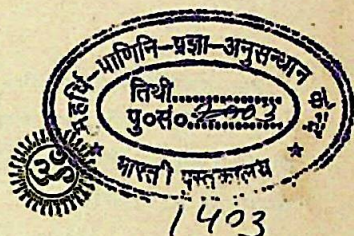 महर्षि-पाणिनि-प्रज्ञा-अनुसन्धान केन्द्र
तिथी..................
पु०सं०
* भारती पुस्तकालय *
ॐ
1403